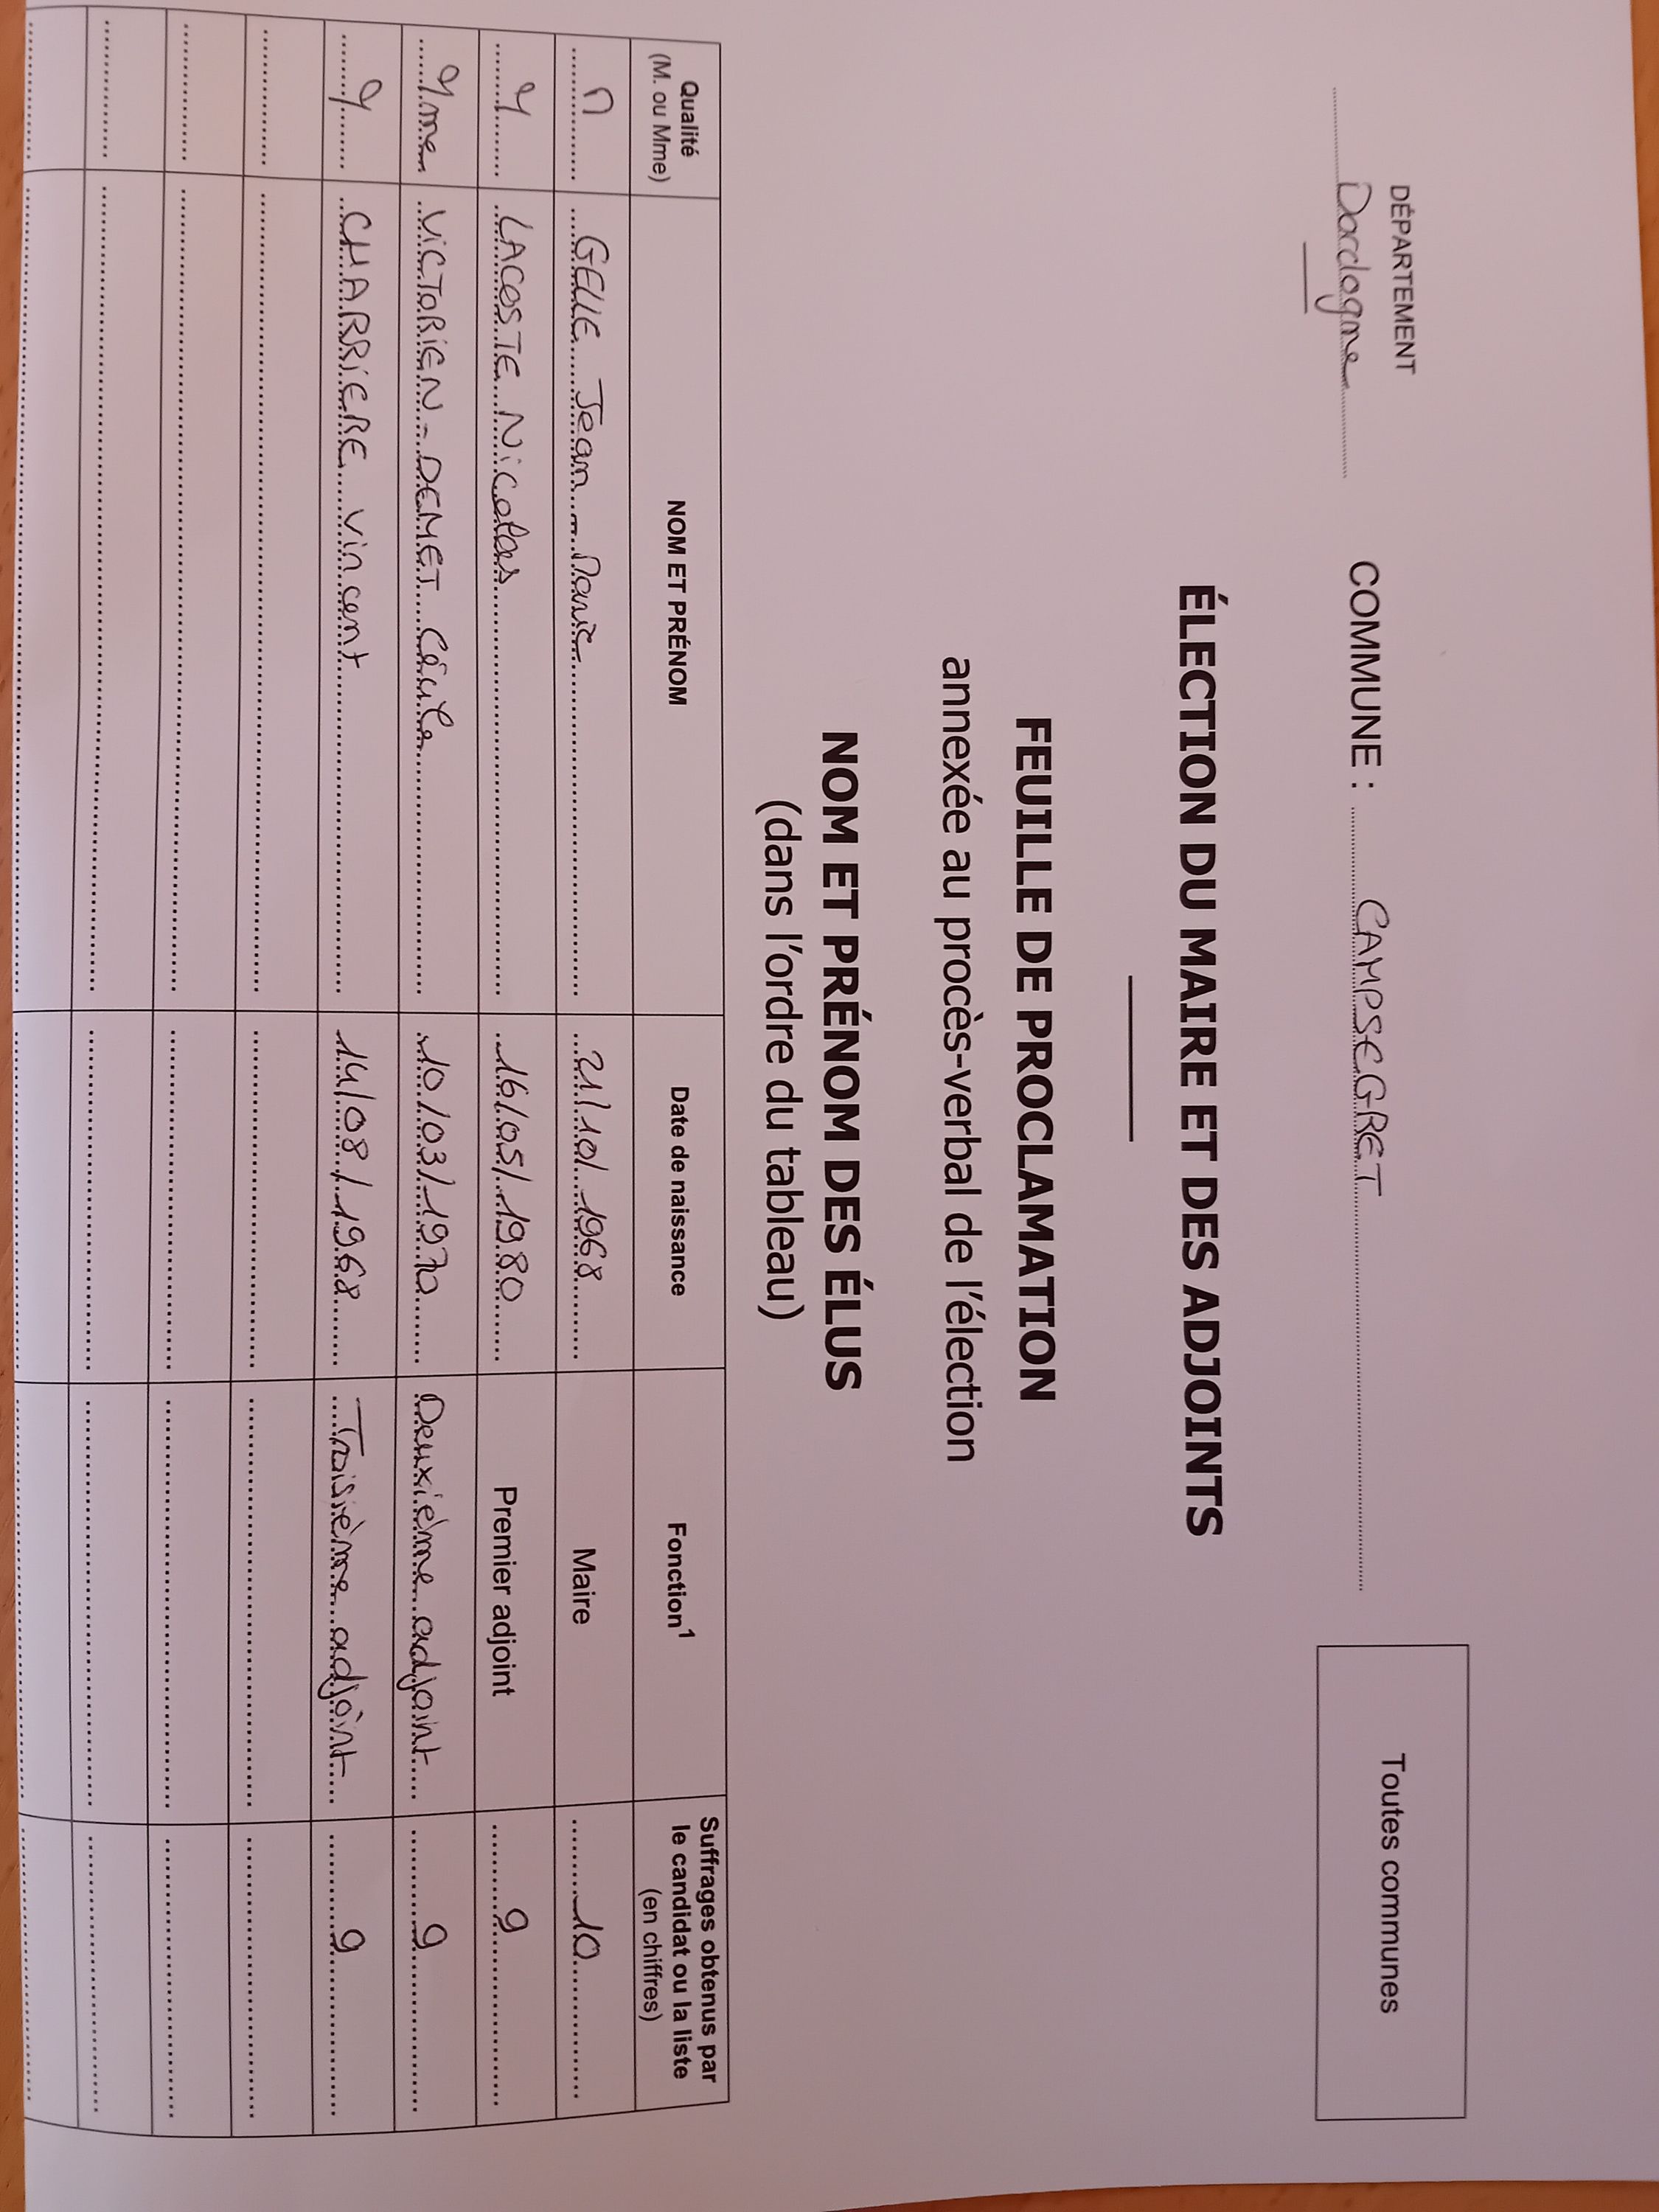 DÉPARTEMENT
Dordogne
COMMUNE : CAMPSEGRET
Toutes communes
ÉLECTION DU MAIRE ET DES ADJOINTS
FEUILLE DE PROCLAMATION
annexée au procès-verbal de l'élection
NOM ET PRÉNOM DES ÉLUS
(dans l'ordre du tableau)
Qualité (M. ou Mme) NOM ET PRÉNOM Date de naissance Fonction1 Suffrages obtenus par le candidat ou la liste (en chiffres)
M GELLE Jean-Marie 21/10/1968 Maire 10
M LACOSTE Nicolas 16/05/1980 Premier adjoint 9
Mme VICTORIEN-DEMET Cécile 10/03/1970 Deuxième adjoint 9
M CHARRIERE Vincent 14/08/1968 Troisième adjoint 9